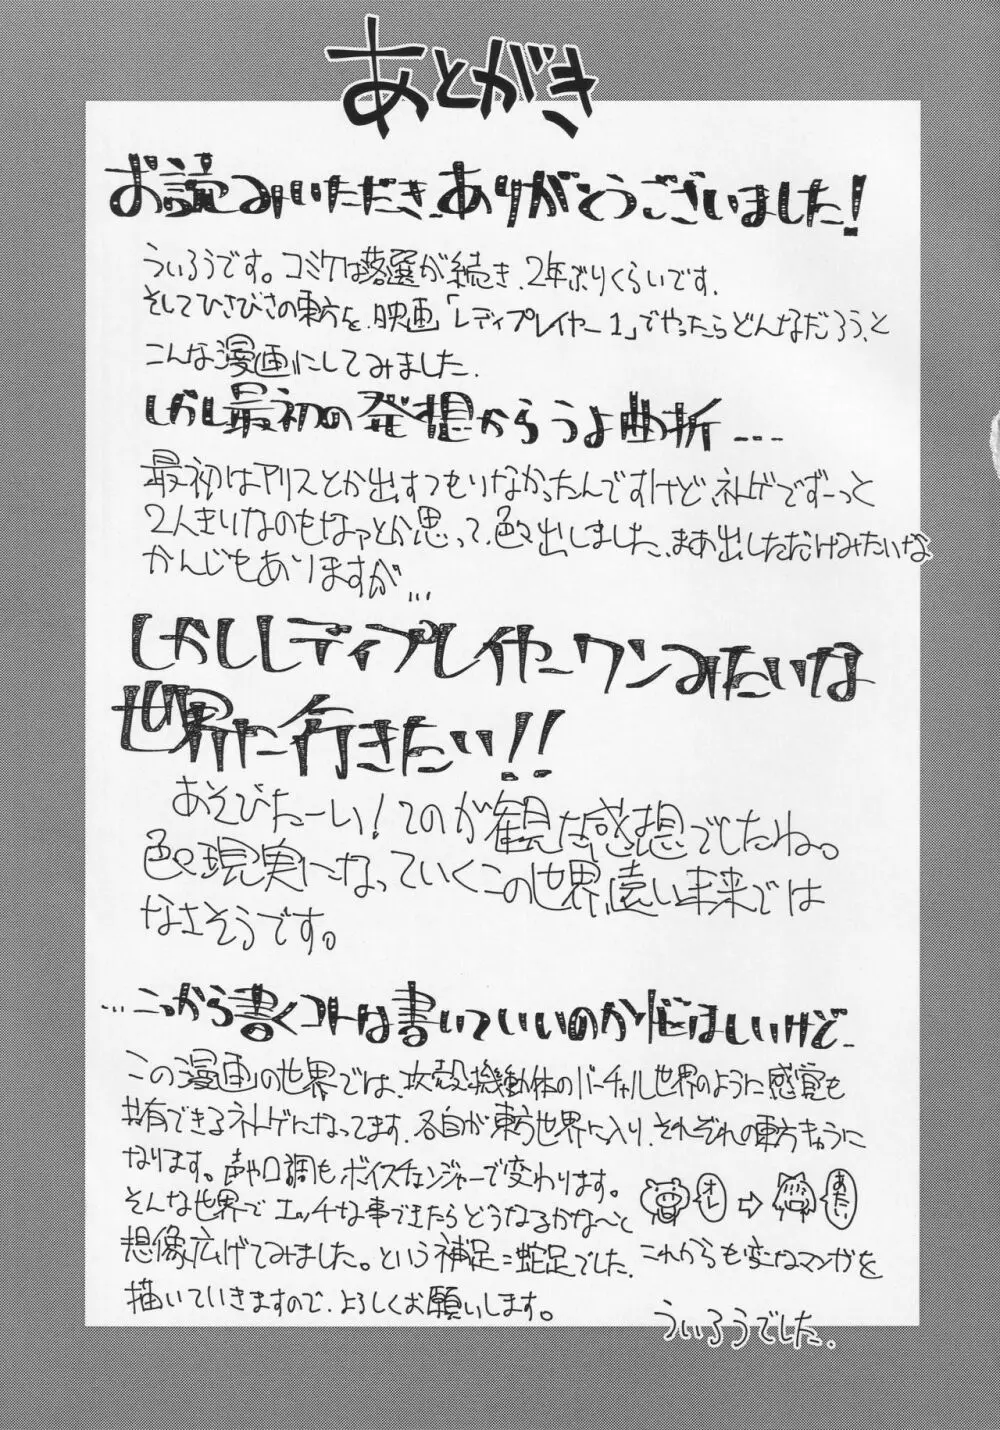 あとがき
お読みいただき、ありがとうございました!
ういろうです。コミケは落選が続き、2年ぶりくらいです。
そしてひさびさの東方を、映画「レディプレイヤー1」でやったらどんなだろう、と
こんな漫画にしてみました。
しかし最初の発想からうよ曲折…
最初はアリスとか出すつもりなかったんですけど、ネトゲでずーっと
2人きりなのもなァとか思って、色々出しました、まあ出しただけみたいな
かんじもありますが…
しかしレディプレイヤーワンみたいな
世界に行きたい!!
あそびたーい!てのが観た感想でしたね。
色々現実になっていくこの世界遠い未来では
なさそうです。
…こっから書くコトは書いていいのか
この漫画の世界では、攻殻機動体のバーチャル世界のように感覚も
共有できるネトゲになってます、各自が東方世界に入り、それぞれの東方きゃらに
なります。声や口調もボイスチェンジャーで変わります。
オレ
⇨
あたい
そんな世界でエッチな事できたらどうなるかな〜と
想像広げてみました。という補足=蛇足でした、これからも変なマンガを
描いていきますので、よろしくお願いします。
ういろうでした。